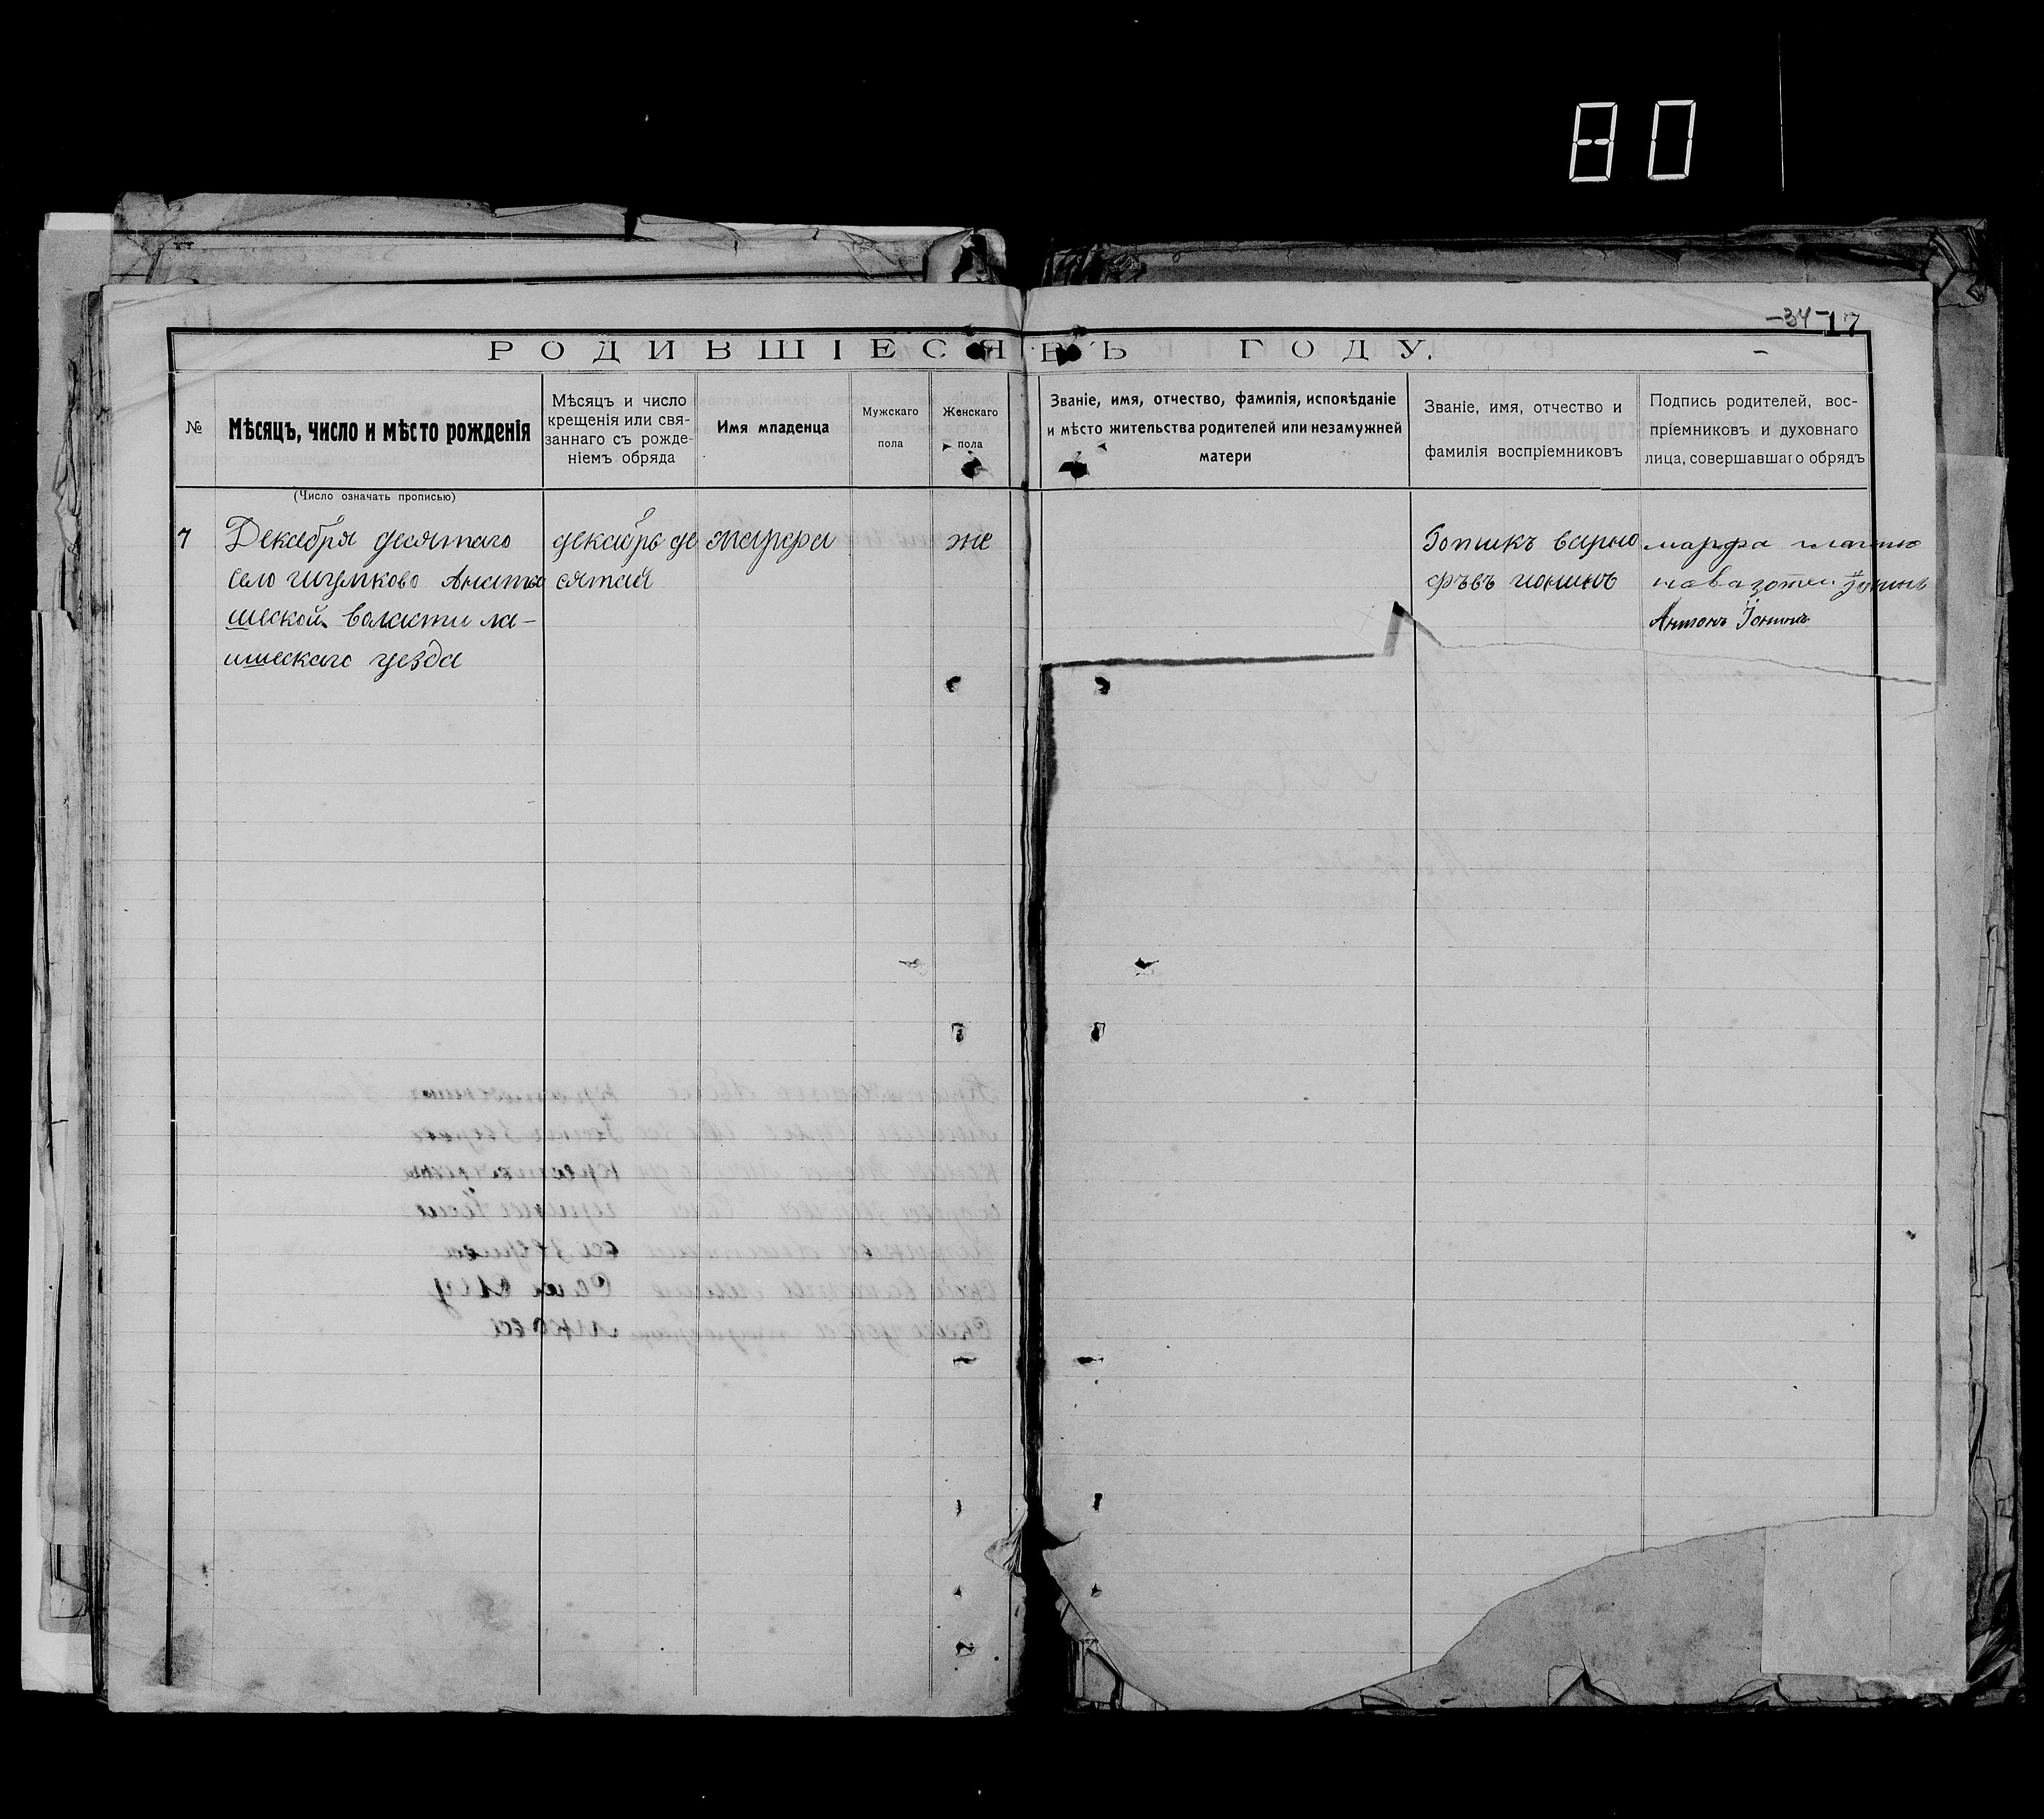 80
-34- 17
РОДИВШІЕСЯ ВЪ ГОДУ.
№
Мѣсяцъ, число и мѣсто рожденія
Мѣсяцъ и число
крещенія или свя-
заннаго съ рожде-
ніемъ обряда
Имя младенца
Мужскаго
пола
Женскаго
пола
Званіе, имя, отчество, фамилія, исповѣданіе
и мѣсто жительства родителей или незамужней
матери
Званіе, имя, отчество и
фамилія воспріемниковъ
Подпись родителей, вос-
пріемниковъ и духовнаго
лица, совершавшаго обрядъ
(Число означать прописью)
7 Декабря десятаго
село шумково
шеской валасти ла-
ишескаго уезда
декабрь де
сятая
марфа
же
марфа
Антонъ Іонинъ